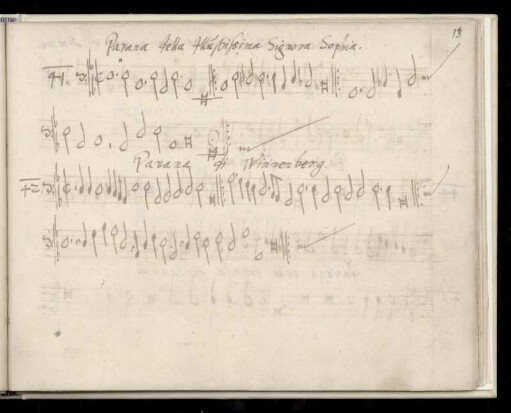 13
Pavana della Illustissima Signora Sophia.
41.
Pavana di Winnenberg
42